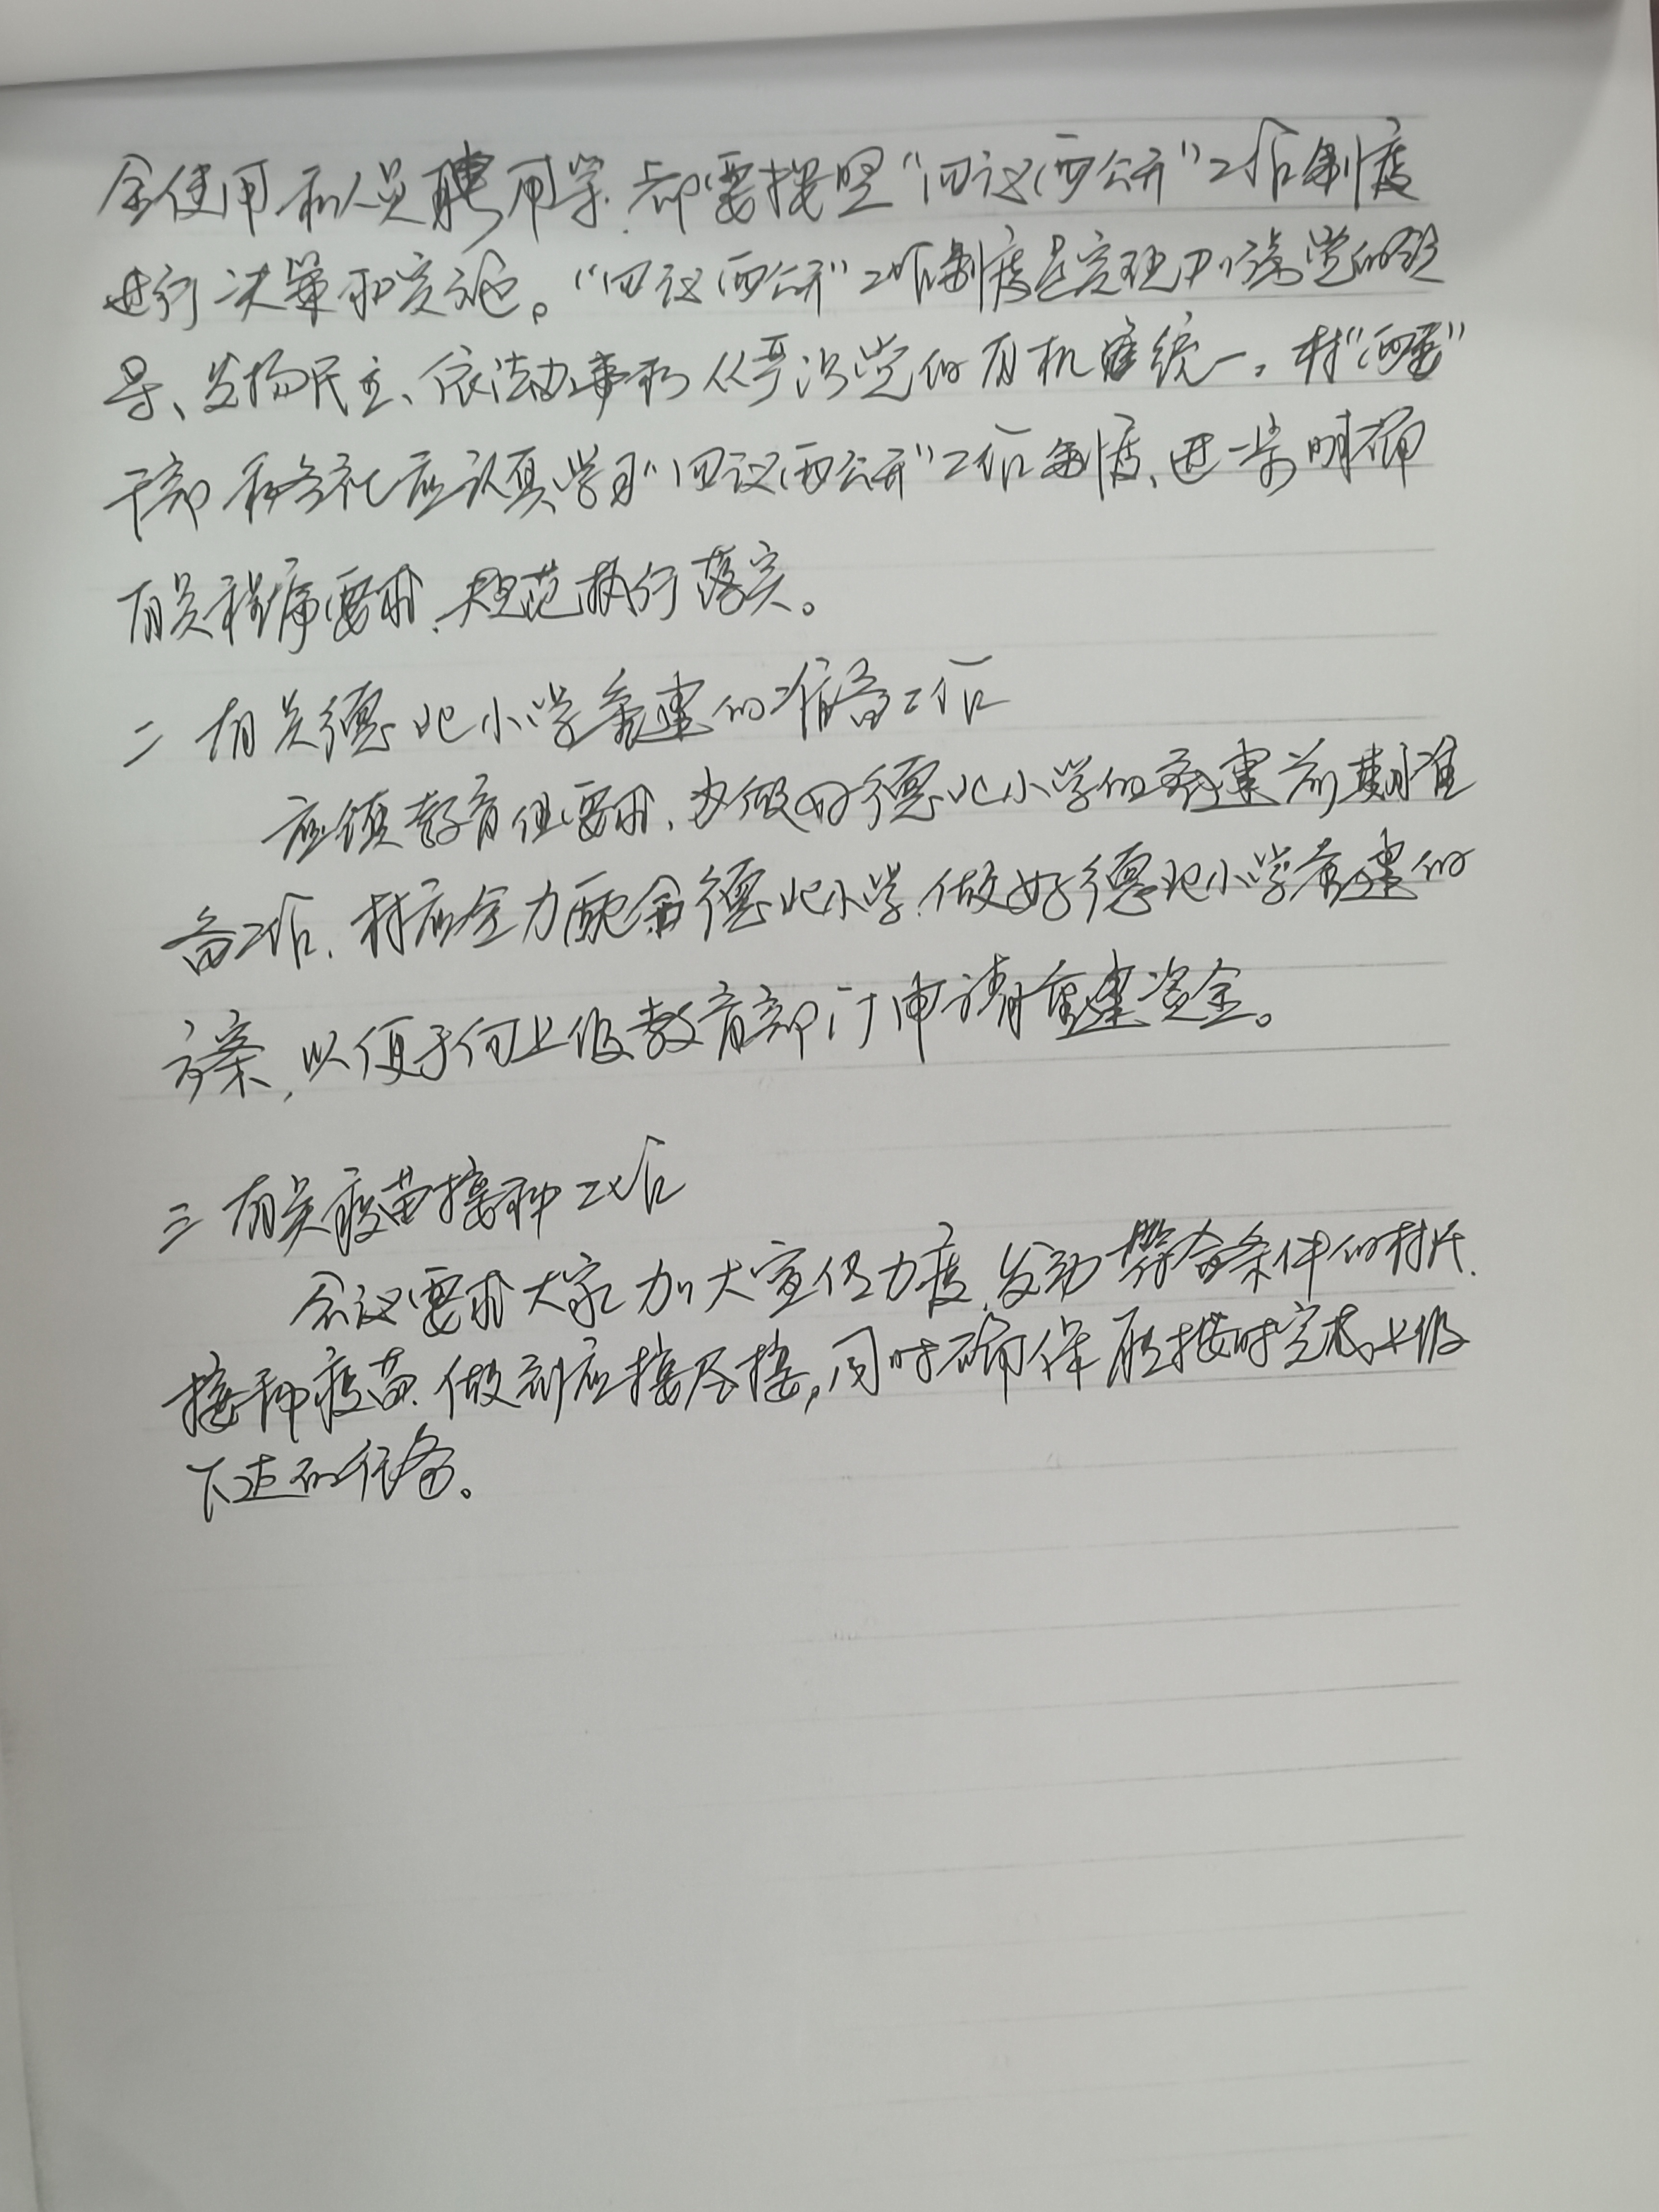 金使用和人员聘用等.都要按照“四议两公开”工作制度
进行决策和实施。“四议两公开”工作制度是实现加强党的领
导、发扬民主、依法办事和从严治党的有机统一。村“两委”
干部和各社应认真学习“四议两公开”工作制度、进一步明确
有关程序要求.规范执行落实。
二 有关德北小学重建的准备工作
应镇教育组要求.为做好德北小学的重建前期准
备工作.村应全力配合德北小学.做好德北小学重建的
方案,以便于向上级教育部门申请重建资金。
三 有关疫苗接种工作
会议要求大家加大宣传力度.发动符合条件的村民.
接种疫苗.做到应接尽接,同时确保能按时完成上级
下达的任务。